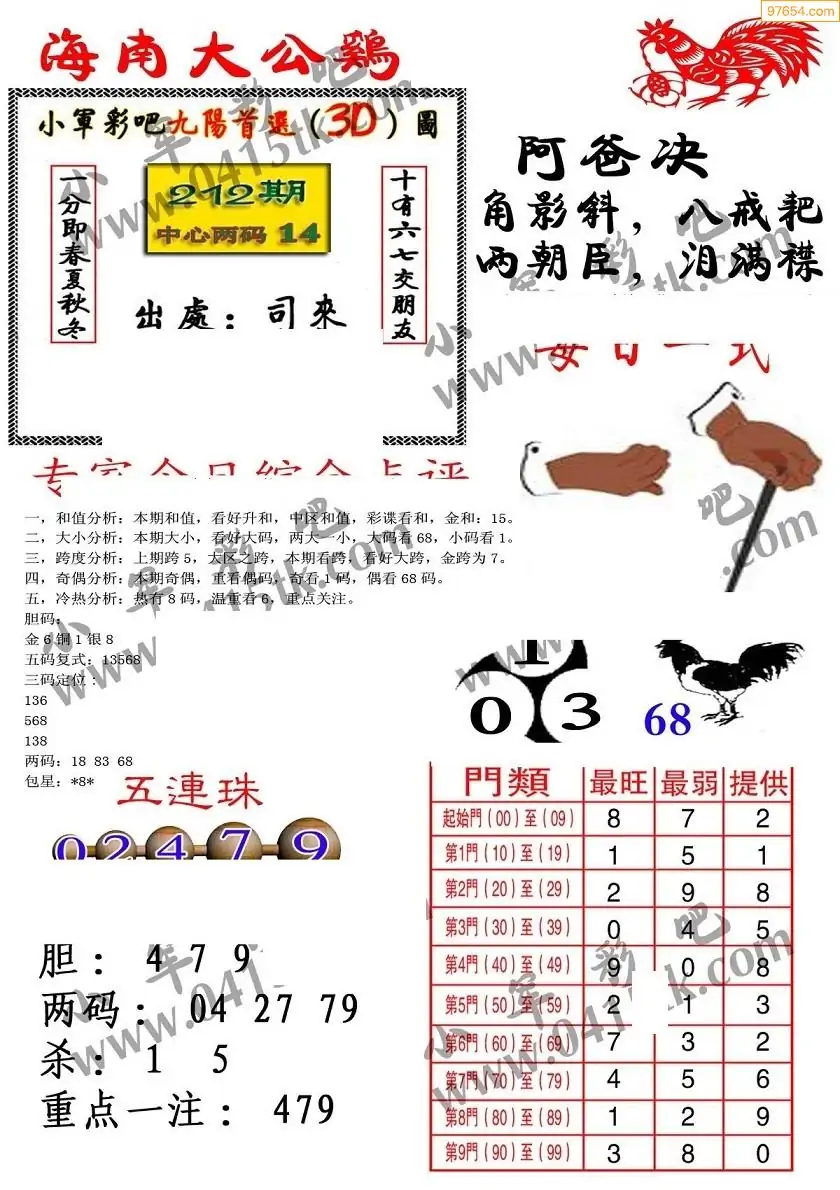 97654.com
海南大公鷄
小軍彩吧九陽首選(3D)圖
一分即春夏秋冬
212期
中心两码 14
十有六七交朋友
出處：司來
阿爸决
角影斜，八戒耙
两朝臣，泪满襟
每日一式
专家今日综合点评
一，和值分析：本期和值，看好升和，中区和值，彩谍看和，金和：15。
二，大小分析：本期大小，看好大码，两大一小，大码看68，小码看1。
三，跨度分析：上期跨5，大区之跨，本期看跨，看好大跨，金跨为7。
四，奇偶分析：本期奇偶，重看偶码，奇看1码，偶看68码。
五，冷热分析：热有8码，温重看6，重点关注。
胆码：
金6铜1银8
五码复式：13568
三码定位：
136
568
138
两码：18 83 68
包星：*8*
1
0 3
68
五連珠
0 2 4 7 9
胆： 4 7 9
两码： 04 27 79
杀： 1 5
重点一注： 479
門類 最旺 最弱 提供
起始門（00）至（09） 8 7 2
第1門（10）至（19） 1 5 1
第2門（20）至（29） 2 9 8
第3門（30）至（39） 0 4 5
第4門（40）至（49） 9 0 8
第5門（50）至（59） 2 1 3
第6門（60）至（69） 7 3 2
第7門（70）至（79） 4 5 6
第8門（80）至（89） 1 2 9
第9門（90）至（99） 3 8 0
小军彩吧
www.0415tk.com